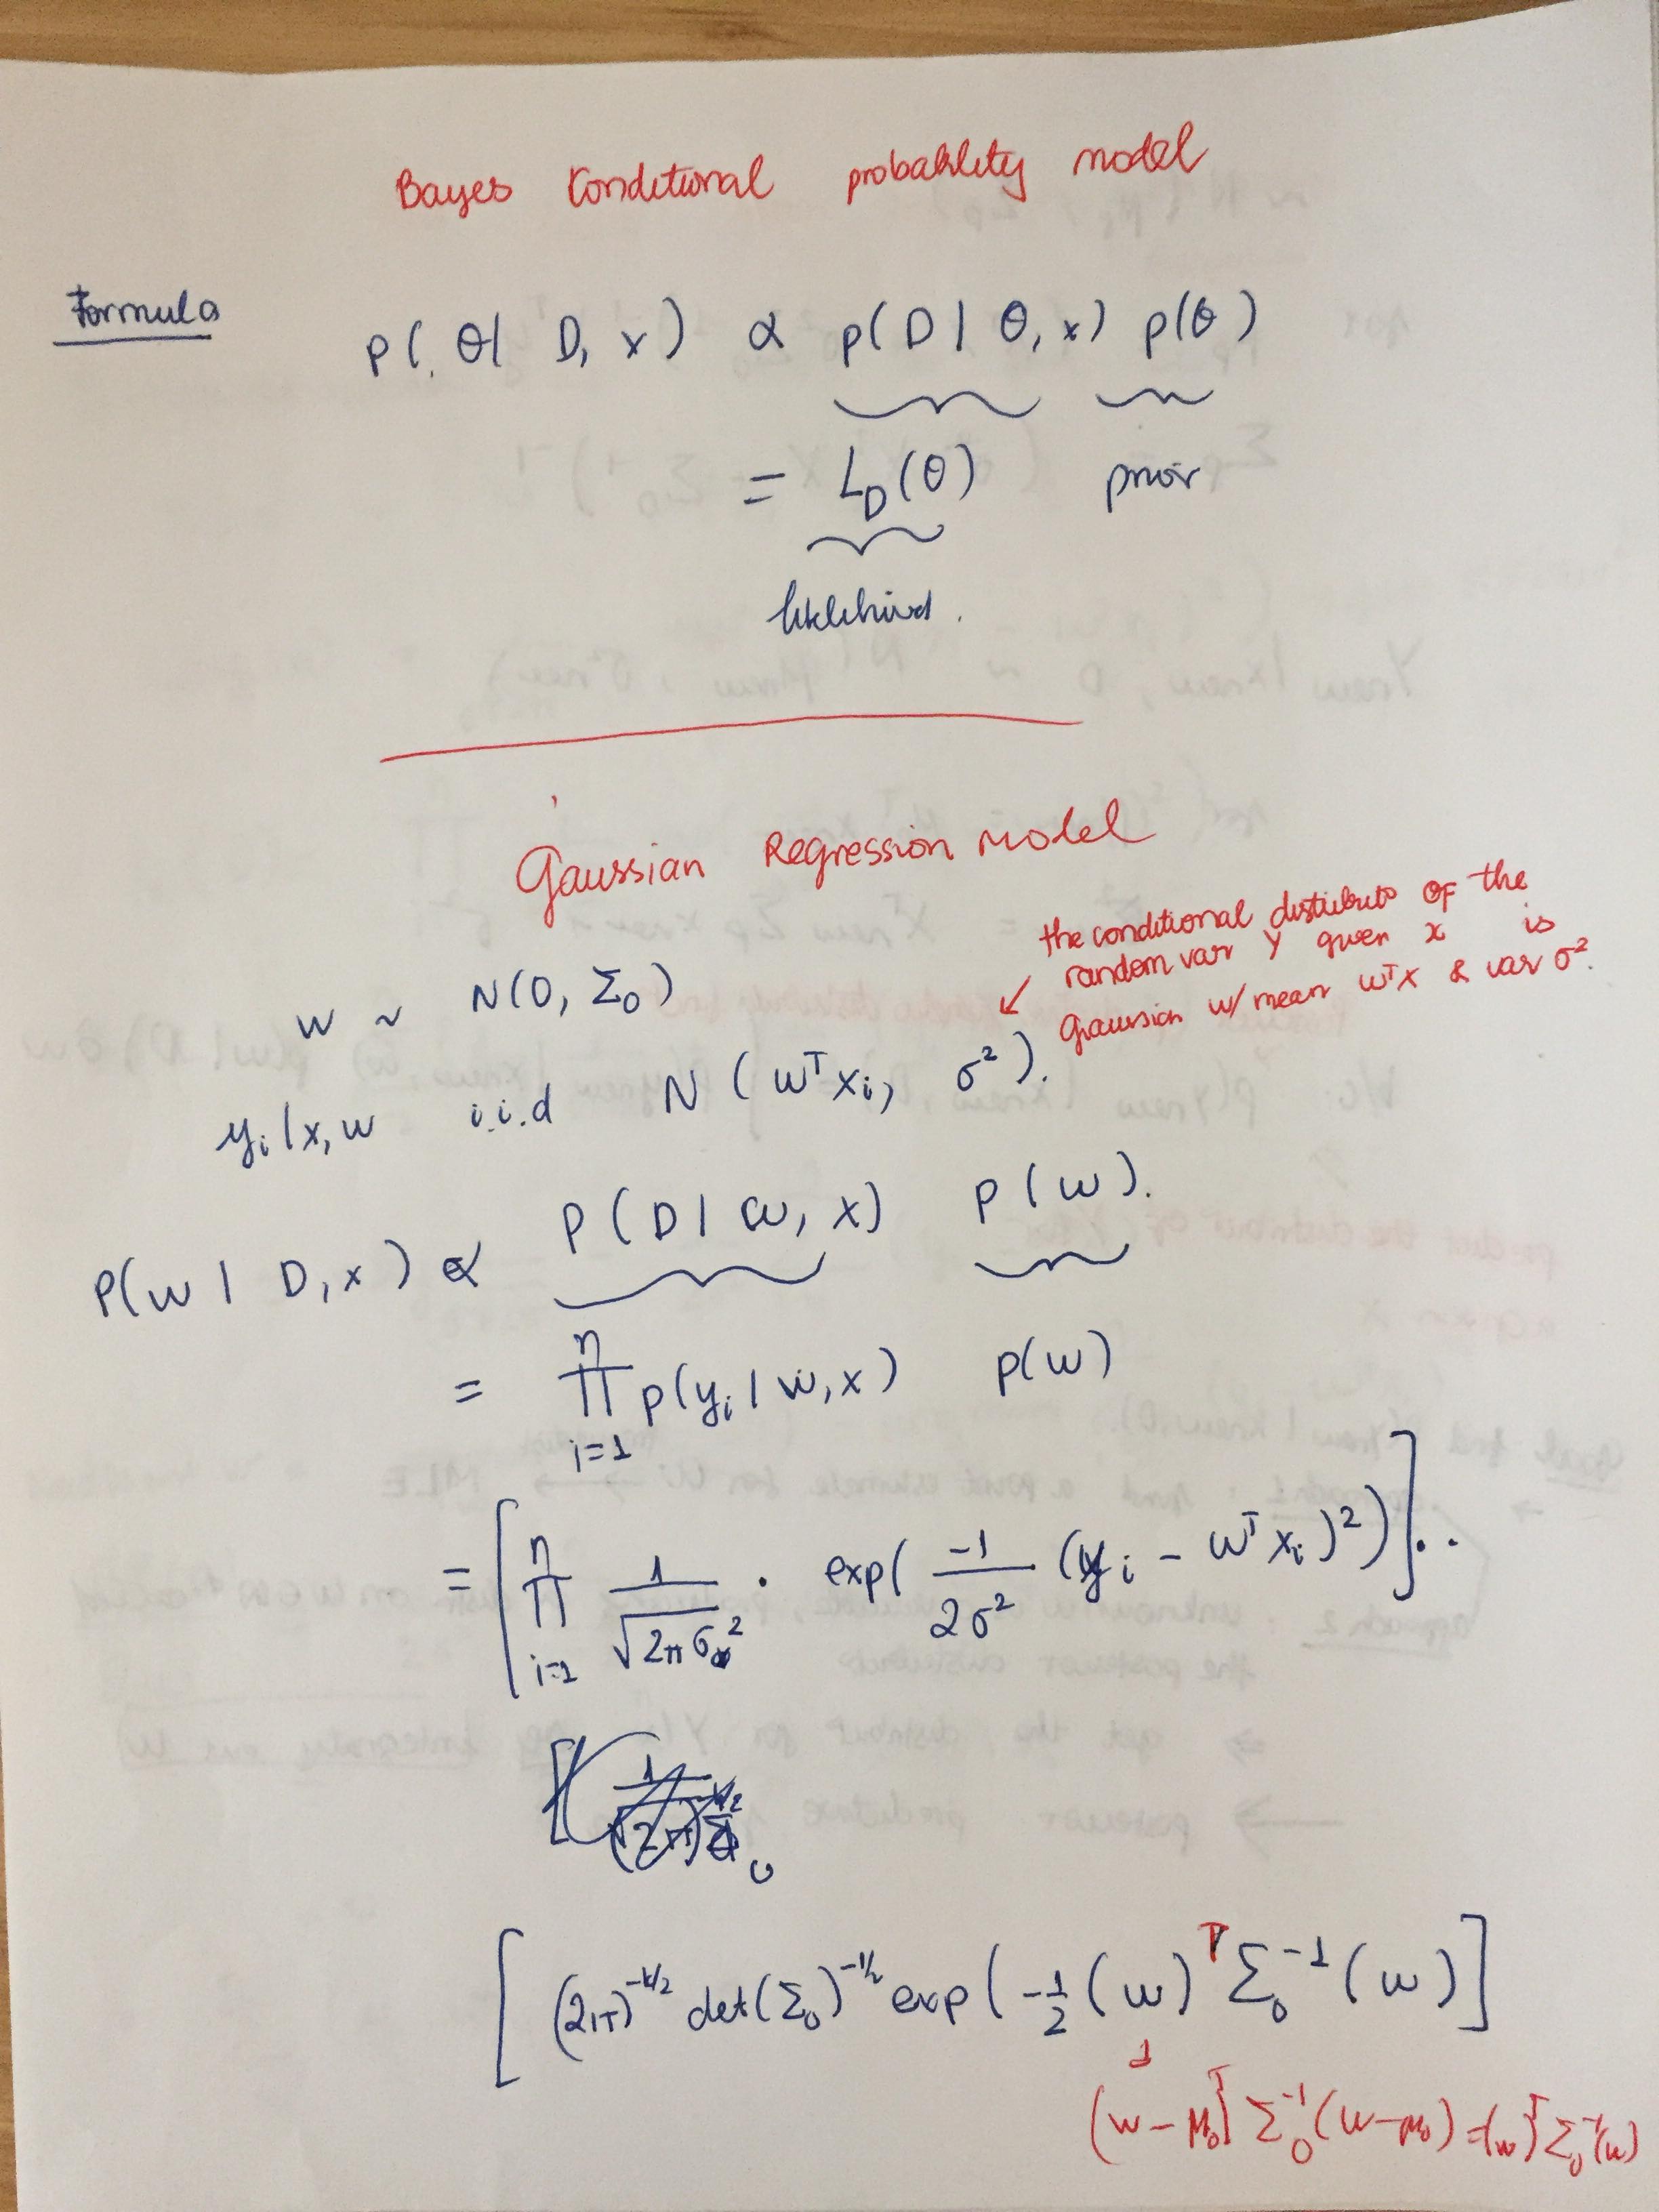 Bayes Conditional probability model
Formula
P(θ| D, x) ∝ p(D | θ, x) p(θ)
= L_D(θ) prior
likelihood.
Gaussian Regression Model
the conditional distributo of the
random var Y given x is
Gaussian w/ mean wᵀx & var σ².
w ~ N(0, Σ₀)
yᵢ | x, w i.i.d N(wᵀxᵢ, σ²).
P(w | D, x) ∝ P(D | w, x) P(w).
= ∏ᵢ₌₁ⁿ p(yᵢ | w, x) p(w)
= [∏ᵢ₌₁ⁿ 1/√(2πσ²) · exp(-1/(2σ²) (yᵢ - wᵀxᵢ)²)] ..
[(2π)^(-k/2) det(Σ₀)^(-1/2) exp(-1/2 (w)ᵀ Σ₀⁻¹ (w)]
(w - μ₀)ᵀ Σ₀⁻¹ (w - μ₀) = (w)ᵀ Σ₀⁻¹ (w)